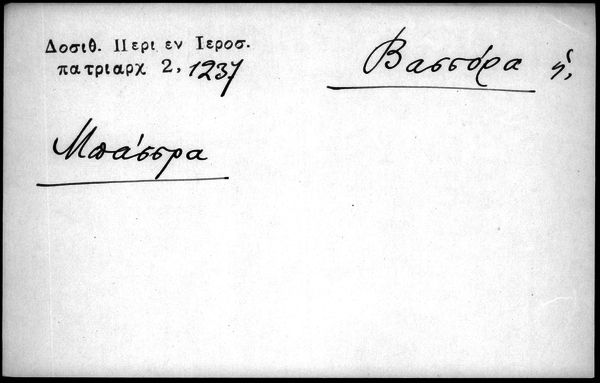 Δοσιθ. Περι εν Ιεροσ.
πατριαρχ 2, 1237
Βασσόρα ἡ,
Μπάσσρα